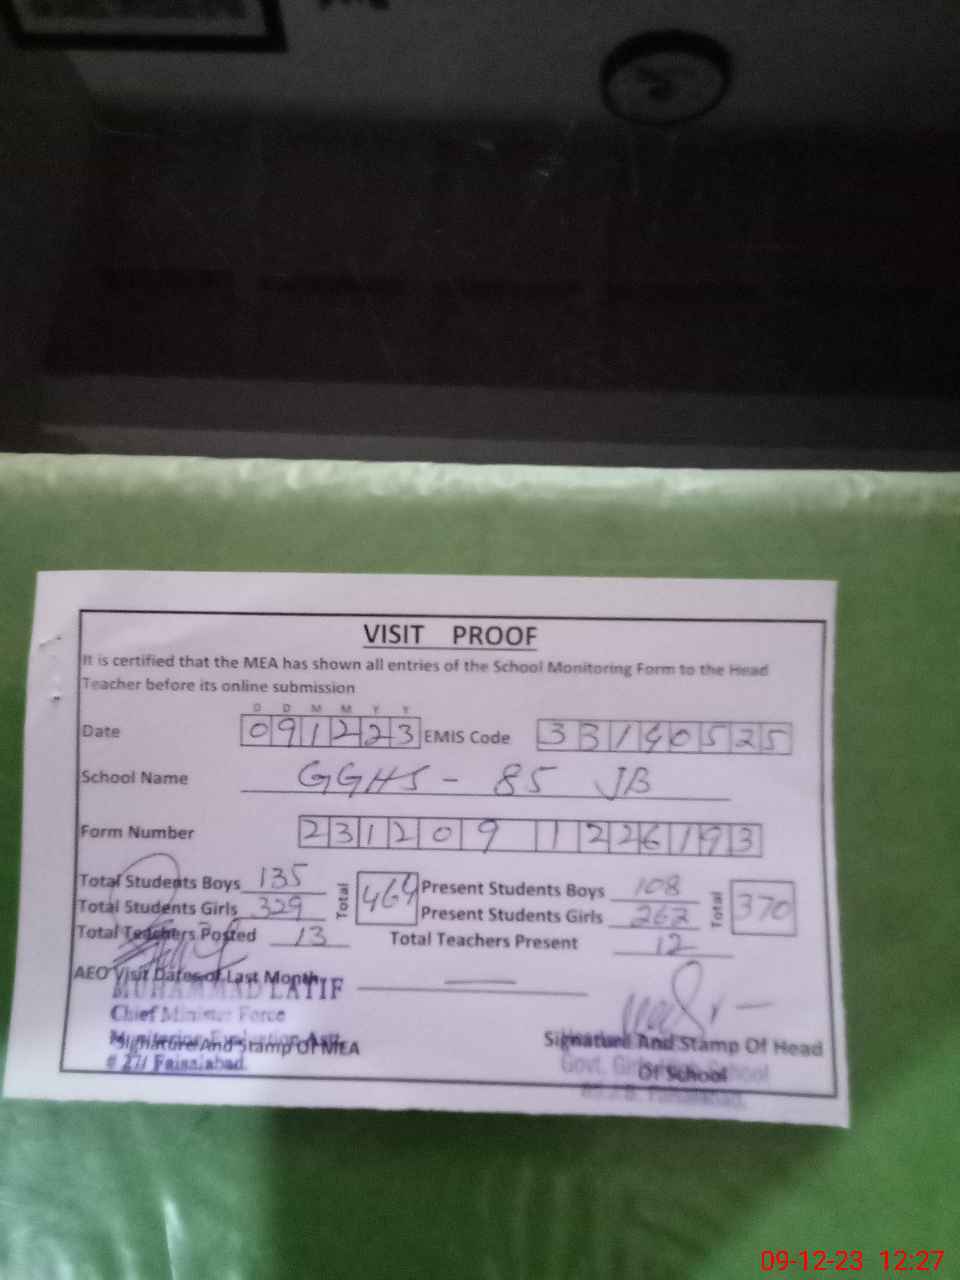 VISIT PROOF
It is certified that the MEA has shown all entries of the School Monitoring Form to the Head
Teacher before its online submission
D D M M Y Y
Date 091223 EMIS Code 33140525
School Name GGHS - 85 JB
Form Number 231209 1226193
Total Students Boys 135 Total 464 Present Students Boys 108 Total 370
Total Students Girls 329 Present Students Girls 262
Total Teachers Posted 13 Total Teachers Present 12
AEO Visit Dates of Last Month —
MUHAMMAD LATIF
Chief Minister Force
Monitoring Evaluation Astt.
# 27/ Faisalabad.
Signature And Stamp Of MEA
Signature And Stamp Of Head
Of School
Govt. Girls School
85 J.B. Faisalabad.
09-12-23 12:27